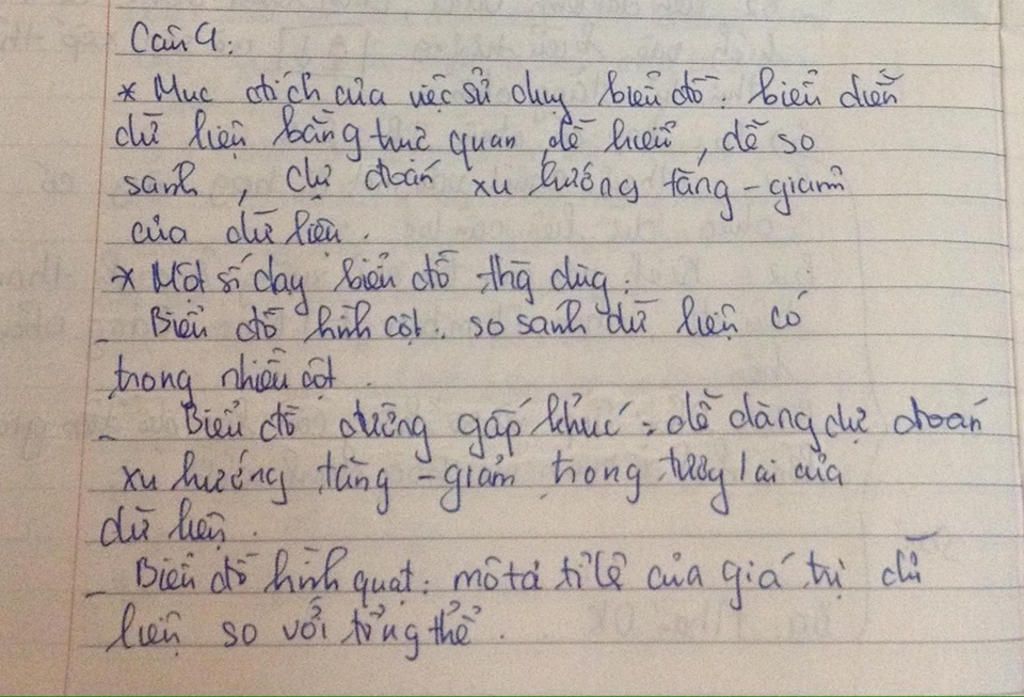 Câu 9:
* Mục đích của việc sử dụng biểu đồ: biểu diễn
dữ liệu bằng trực quan, dễ hiểu, dễ so
sánh, dự đoán xu hướng tăng - giảm
của dữ liệu.
* Một số dạng biểu đồ thg dùng:
- Biểu đồ hình cột: so sánh dữ liệu có
trong nhiều cột.
- Biểu đồ đường gấp khúc: dễ dàng dự đoán
xu hướng tăng - giảm trong tương lai của
dữ liệu.
- Biểu đồ hình quạt: mô tả tỉ lệ của giá trị dữ
liệu so với tổng thể.